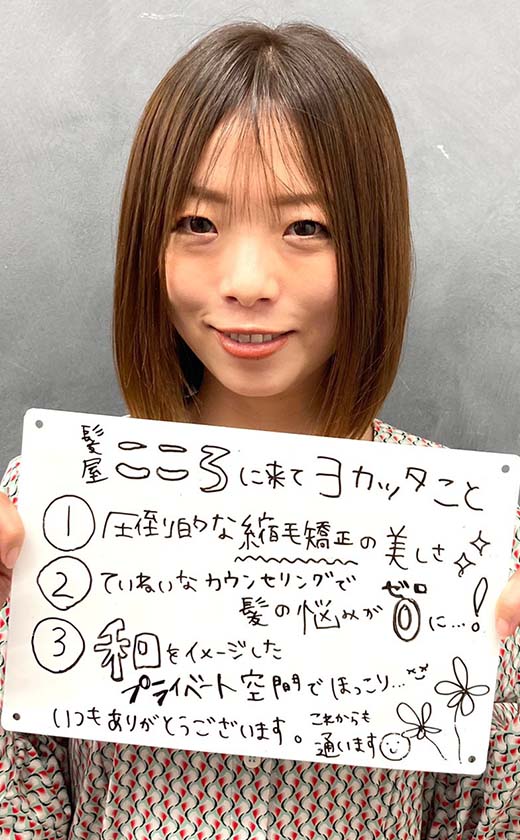 髪屋 こころに来てヨカッタこと
① 圧倒的な縮毛矯正の美しさ
② ていねいなカウンセリングで
髪の悩みが0に…!
ゼロ
③ 和をイメージした
プライベート空間でほっこり…
いつもありがとうございます。
これからも
通います